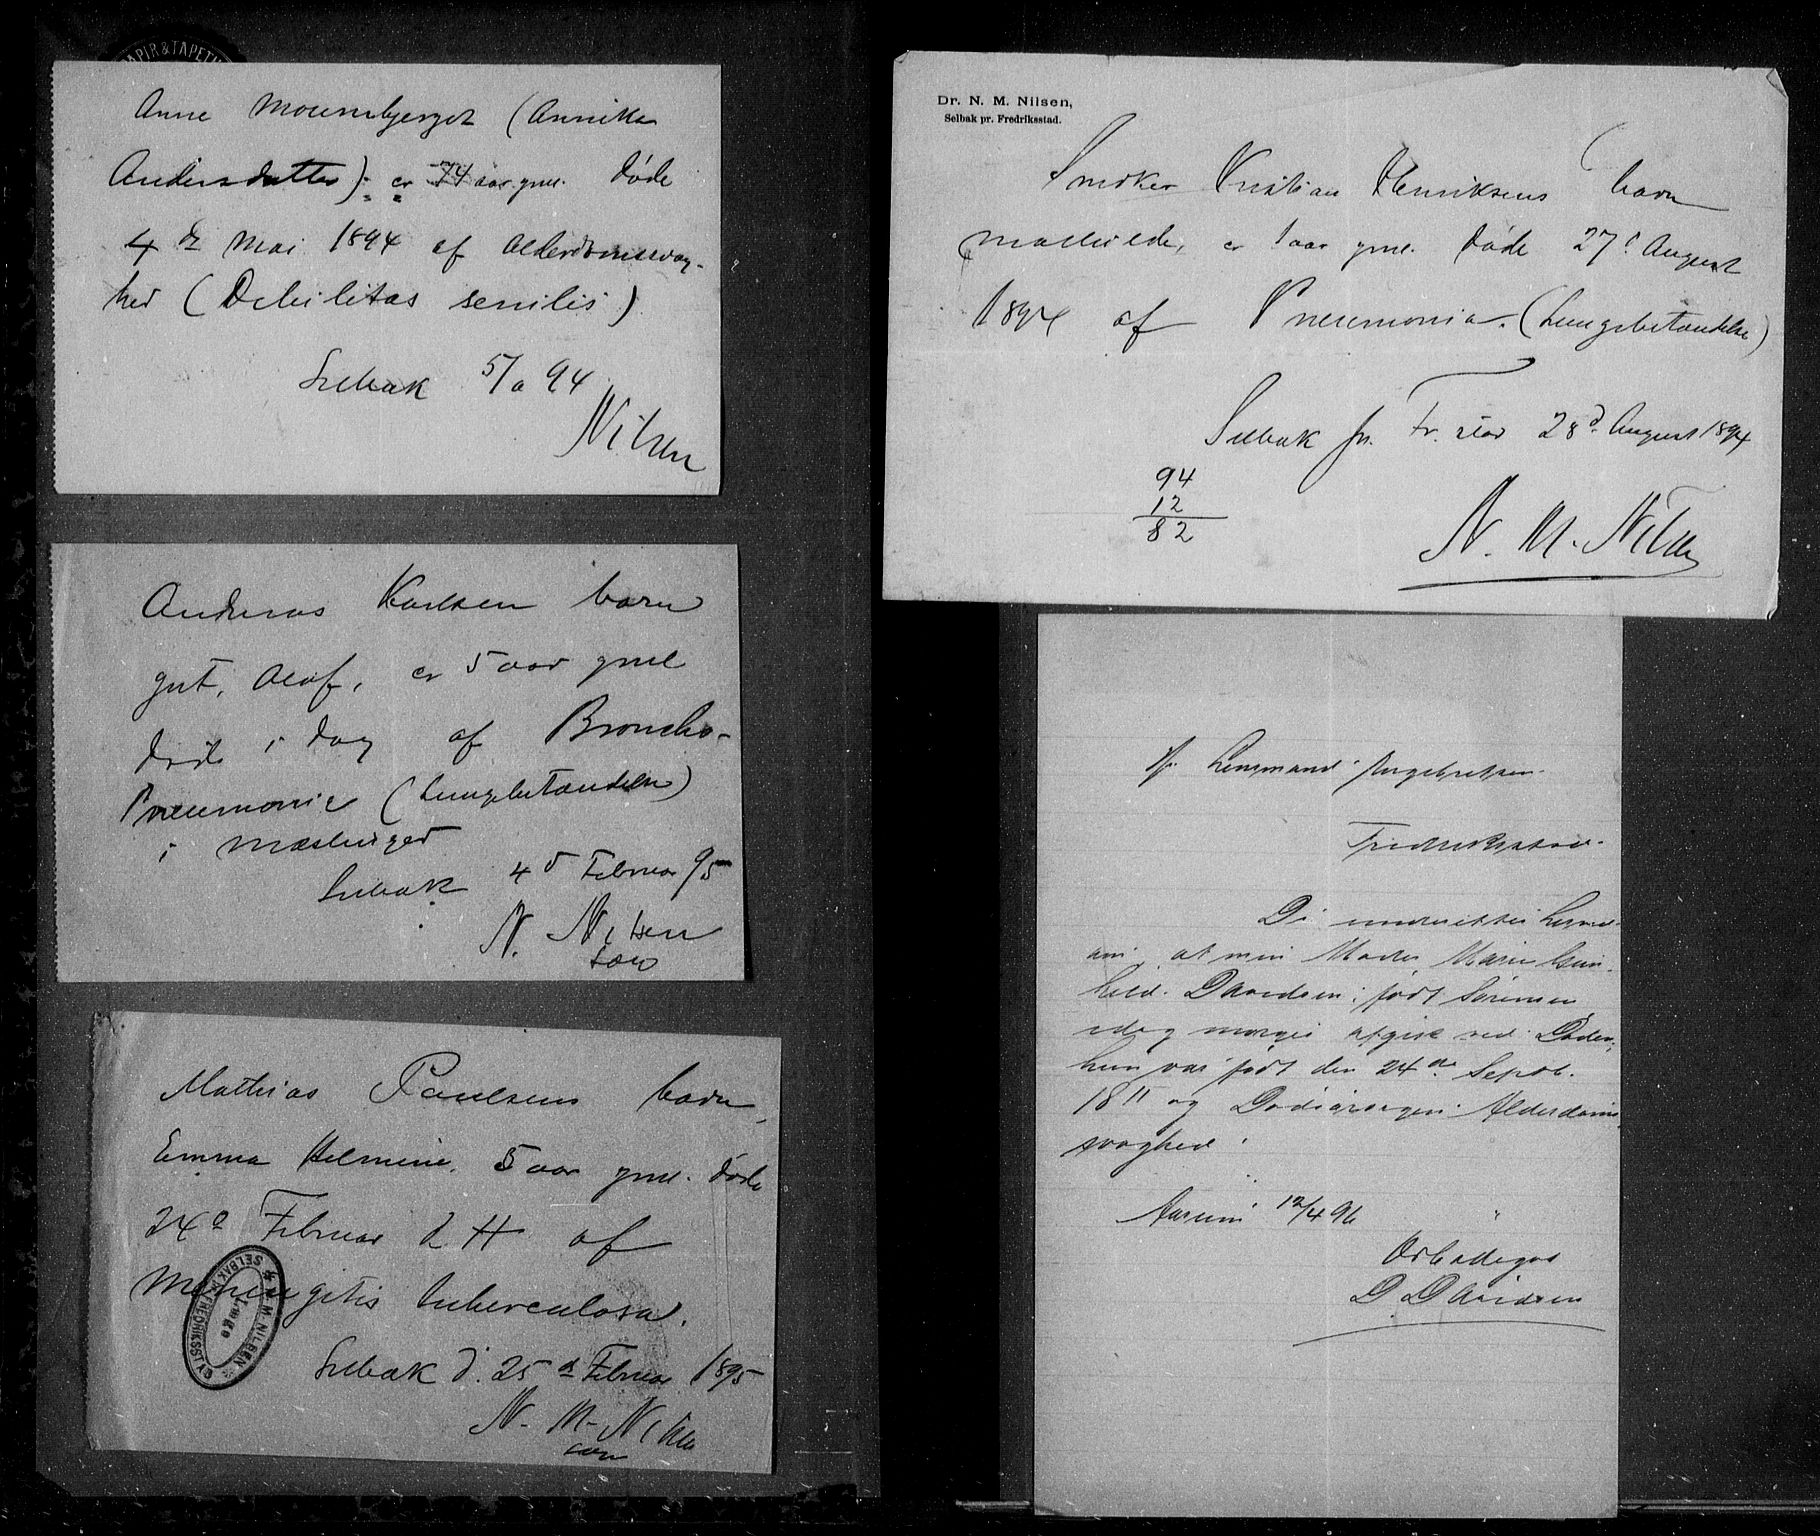 PAPIR & TAPETH
Anne (Annikka
Andersdatter) er 74 aar gml. døde
4de Mai 1894 af Alderdomssvag-
hed (Debilitas senilis)
Selbak 5/ 94
Nilsen
Andreas Karlsen barn
gut, Olaf, er 5 aar gml
døde i dag af Broncho-
Pneumonie (Lungebetændelse)
i mæslinger
Selbak 4d Februar 95
N. Nilsen
Mathias Paulsens barn,
Emma Helmine, 5 aar gml. døde
24d Februar d. A. af
Meningitis tuberculosa.
N. M. NILSEN
Læge
SELBAK PR. FREDRIKSSTAD
Selbak d. 25d Februar 1895
N. M. Nilsen
Dr. N. M. Nilsen,
Selbak pr. Fredriksstad.
Smører Kristian Henriksens barn
Mathilde, er 1 aar gml. døde 27d August
1894 af Pneumonia. (Lungebetændelse)
Selbak pr. Fr.stad 28d August 1894
94
12
82
N. M. Nilsen
Hr. Lensmand Ingebretsen.
Fredrikstad.
De underrettes
om, at min Moder Marie Gun-
hild Davidsen, født Sørensen
idag morges afgik ved Døden,
hun var født den 24de Septb.
1811 og Dødsårsagen: Alderdoms
svaghed.
Aarum 12/4 96
Ærbødigst
D Davidsen